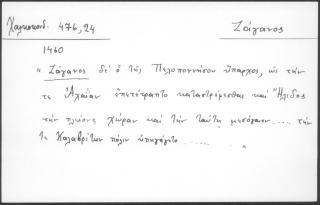 Χαλκοκονδ. 476,24 Ζάγανος
1460
" Ζάγανος δὲ ὁ τῆς Πελοποννήσου ὕπαρχος, ὡς τήν
τε Ἀχαΐαν ἐπετέτραπτο καταστρέψεσθαι καὶ Ἤλιδος
τὴν πλείονα χώραν καὶ τὴν ταύτῃ μεσόγαιον ..... τήν
τε Καλαβρύτων πόλιν ὑπηγάγετο ...... ...... "